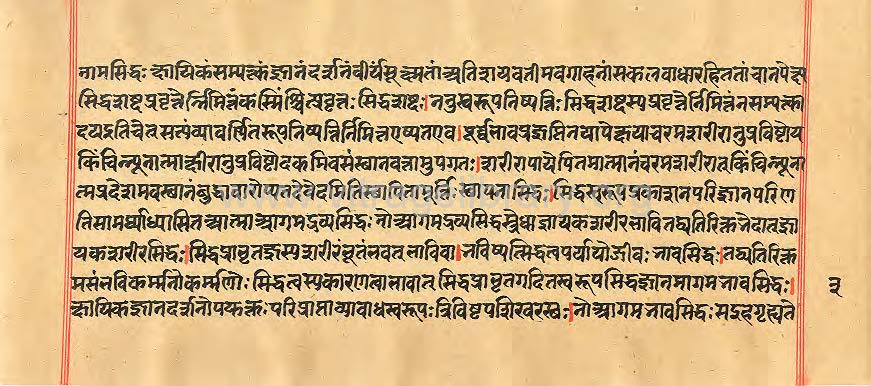 नामसिद्धः क्षायिकं सम्यक्त्वं ज्ञानं दर्शनं वीर्यं सूक्ष्मतां अतिशयवतीमवगाहनां सकलबाधारहिततां चानपेक्ष्य
सिद्धशब्दप्रवृत्तेर्निमित्तं कस्मिंश्चित्प्रवृत्तः सिद्धशब्दः। ननु स्वरूपनिष्पत्तिः सिद्धशब्दस्य प्रवृत्तेर्निमित्तं न सम्यक्त्वा
दय इति चेत् सत्यं व्यावर्णितरूपनिष्पत्तिर्निमित्त एष्यत एव। पूर्वभावप्रज्ञप्तिनयापेक्षया चरमशरीरानुप्रविष्टो य
किंचिन्न्यूनात्मा क्षीरानुप्रविष्टोदकमिव संस्थानवत्तामुपगतः। शरीरापायेपि तमात्मानं चरमशरीरात् किंचिन्न्यूना
त्मप्रदेशसमवस्थानं बुद्धावारोप्य तदेवेदमिति स्थापिता मूर्तिः स्थापनासिद्धः। सिद्धस्वरूपप्रकाशनपरिज्ञानपरिण
तिसामर्थ्याध्यासित आत्मा आगमद्रव्यसिद्धः नोआगमद्रव्यसिद्धस्त्रेधा ज्ञायकशरीरभावितद्व्यतिरिक्तभेदात् ज्ञा
यकशरीरसिद्धः। सिद्धप्राभृतज्ञस्य शरीरं भूतं भवत् भावि वा। भविष्यत्सिद्धत्वपर्यायो जीवः भावसिद्धः। तद्व्यतिरिक्त
मसंभवि कर्म्मनोकर्म्मणोः सिद्धत्वस्य कारणत्वाभावात् सिद्धप्राभृतगदितस्वरूपसिद्धज्ञानमागमभावसिद्धः।
क्षायिकज्ञानदर्शनोपयुक्तः परिप्राप्ताव्याबाधस्वरूपः त्रिविष्टपशिखरस्थः। नोआगमभावसिद्धः स इह गृह्यते
३